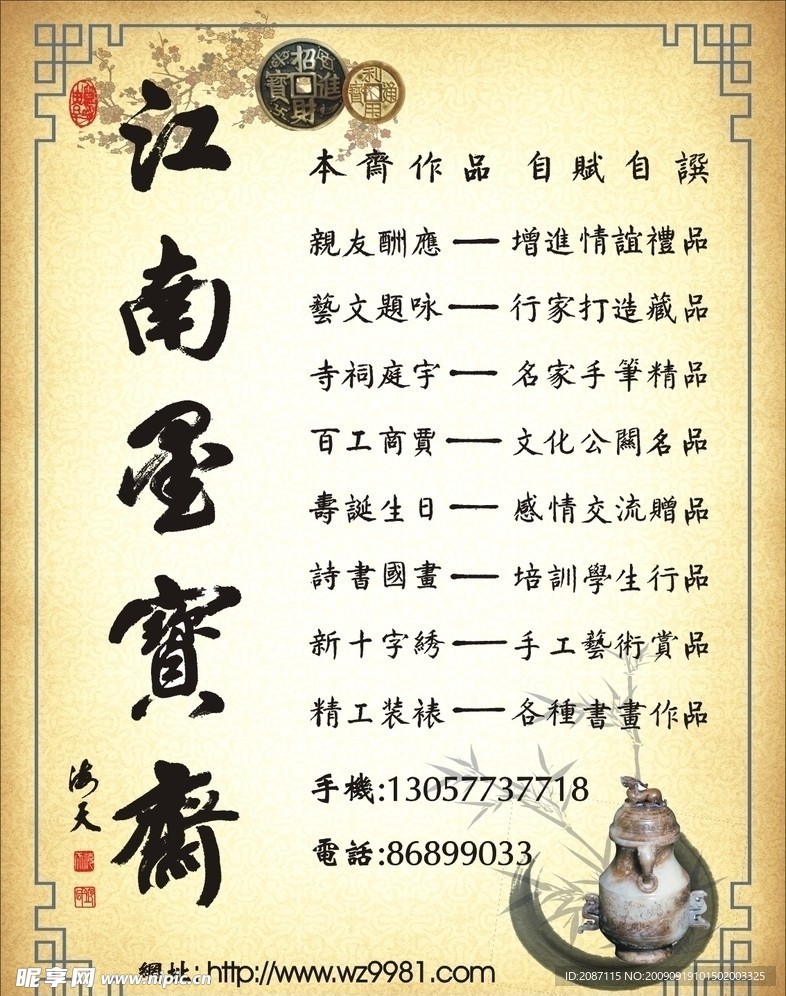 江南墨寶齋
海天
招財進寶
本齋作品 自賦自譔
親友酬應—增進情誼禮品
藝文題咏—行家打造藏品
寺祠庭宇—名家手筆精品
百工商賈—文化公關名品
壽誕生日—感情交流贈品
詩書國畫—培訓學生行品
新十字綉—手工藝術賞品
精工装裱—各種書畫作品
手機:13057737718
電話:86899033
網址: http://www.wz9981.com
昵享网 www.nipic.cn
ID:2087115 NO:20090919101502003325